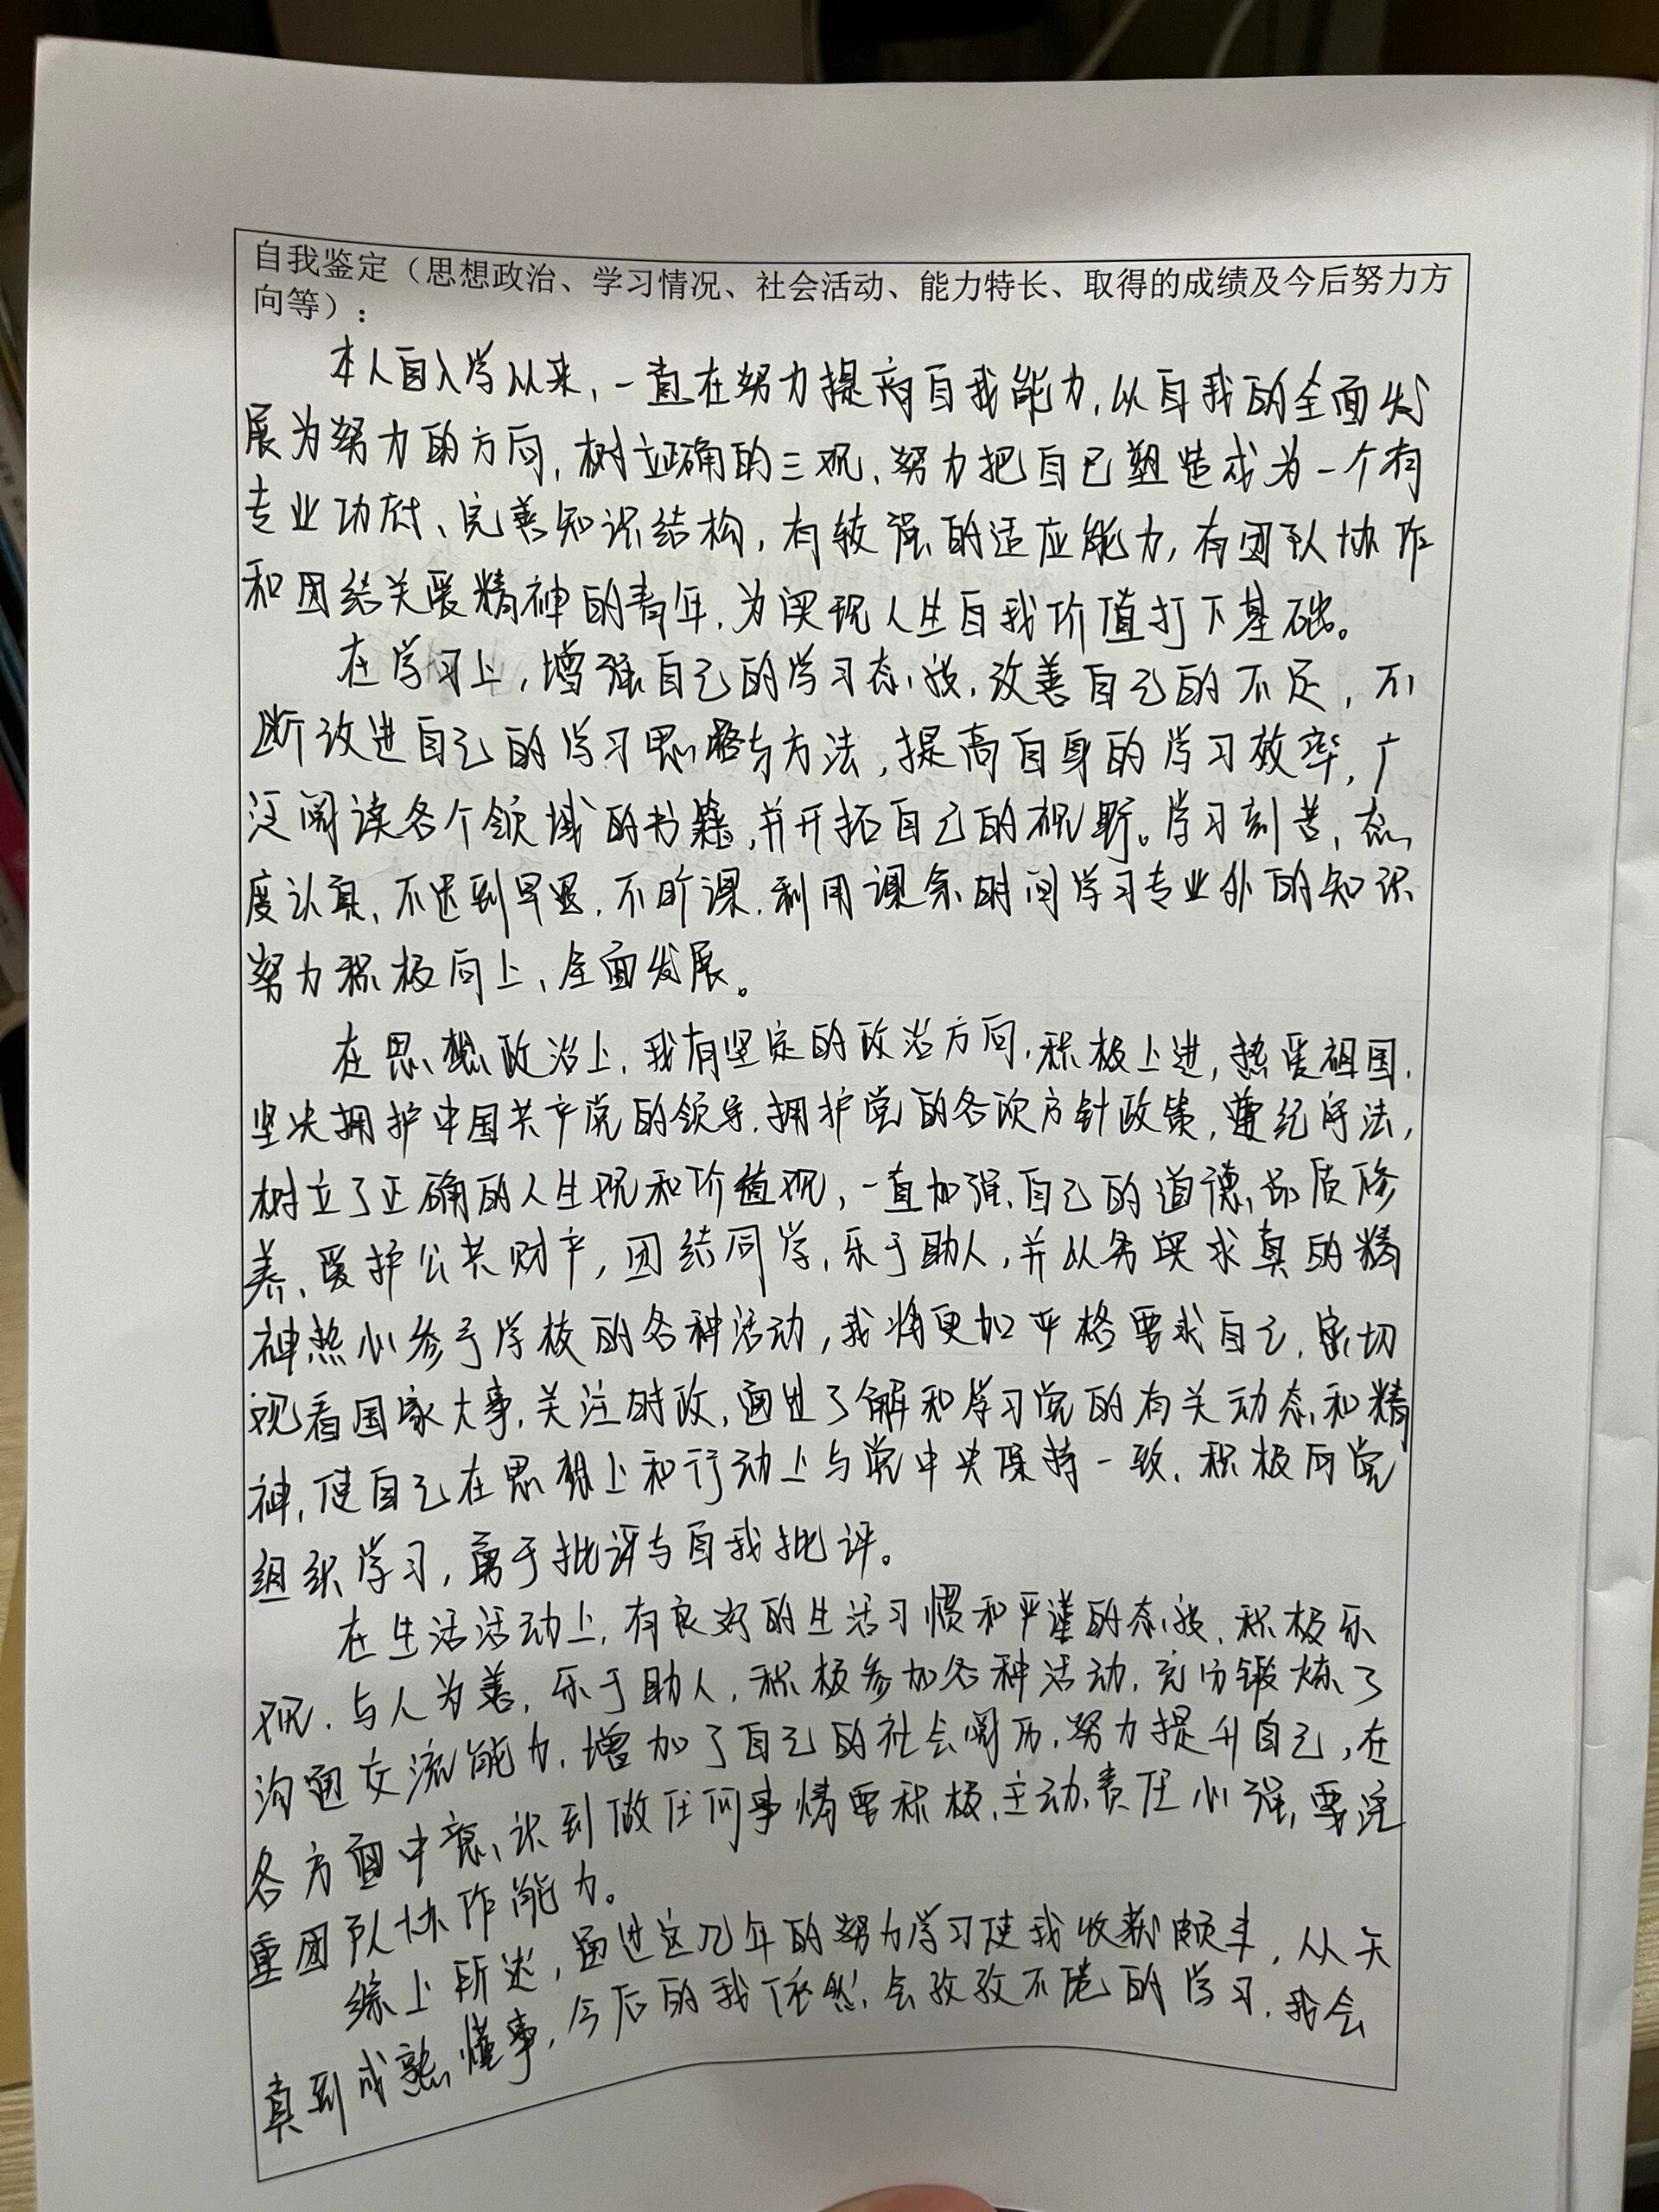 自我鉴定（思想政治、学习情况、社会活动、能力特长、取得的成绩及今后努力方
向等）：
本人自入学以来，一直在努力提高自我能力，从自我的全面发
展为努力的方向，树立正确的三观，努力把自己塑造成为一个有
专业功底、完善知识结构，有较强的适应能力，有团队协作
和团结关爱精神的青年，为实现人生自我价值打下基础。
在学习上，增强自己的学习态度，改善自己的不足，不
断改进自己的学习思路与方法，提高自身的学习效率，广
泛阅读各个领域的书籍，并开拓自己的视野。学习刻苦，态
度认真，不迟到早退，不旷课，利用课余时间学习专业外的知识
努力积极向上，全面发展。
在思想政治上，我有坚定的政治方向，积极上进，热爱祖国，
坚决拥护中国共产党的领导，拥护党的各次方针政策，遵纪守法，
树立了正确的人生观和价值观，一直加强自己的道德品质修
养，爱护公共财产，团结同学，乐于助人，并以务实求真的精
神热心参于学校的各种活动，我将更加严格要求自己，密切
观看国家大事，关注时政，通过了解和学习党的有关动态和精
神，使自己在思想上和行动上与党中央保持一致，积极向党
组织学习，勇于批评与自我批评。
在生活活动上，有良好的生活习惯和严谨的态度，积极乐
观，与人为善，乐于助人，积极参加各种活动，充分锻炼了
沟通交流能力，增加了自己的社会阅历，努力提升自己，在
各方面中意识到做任何事情要积极、主动、责任心强，要注
重团队协作能力。
综上所述，通过这几年的努力学习使我收获颇丰，从天
真到成熟懂事，今后的我依然会孜孜不倦的学习，我会